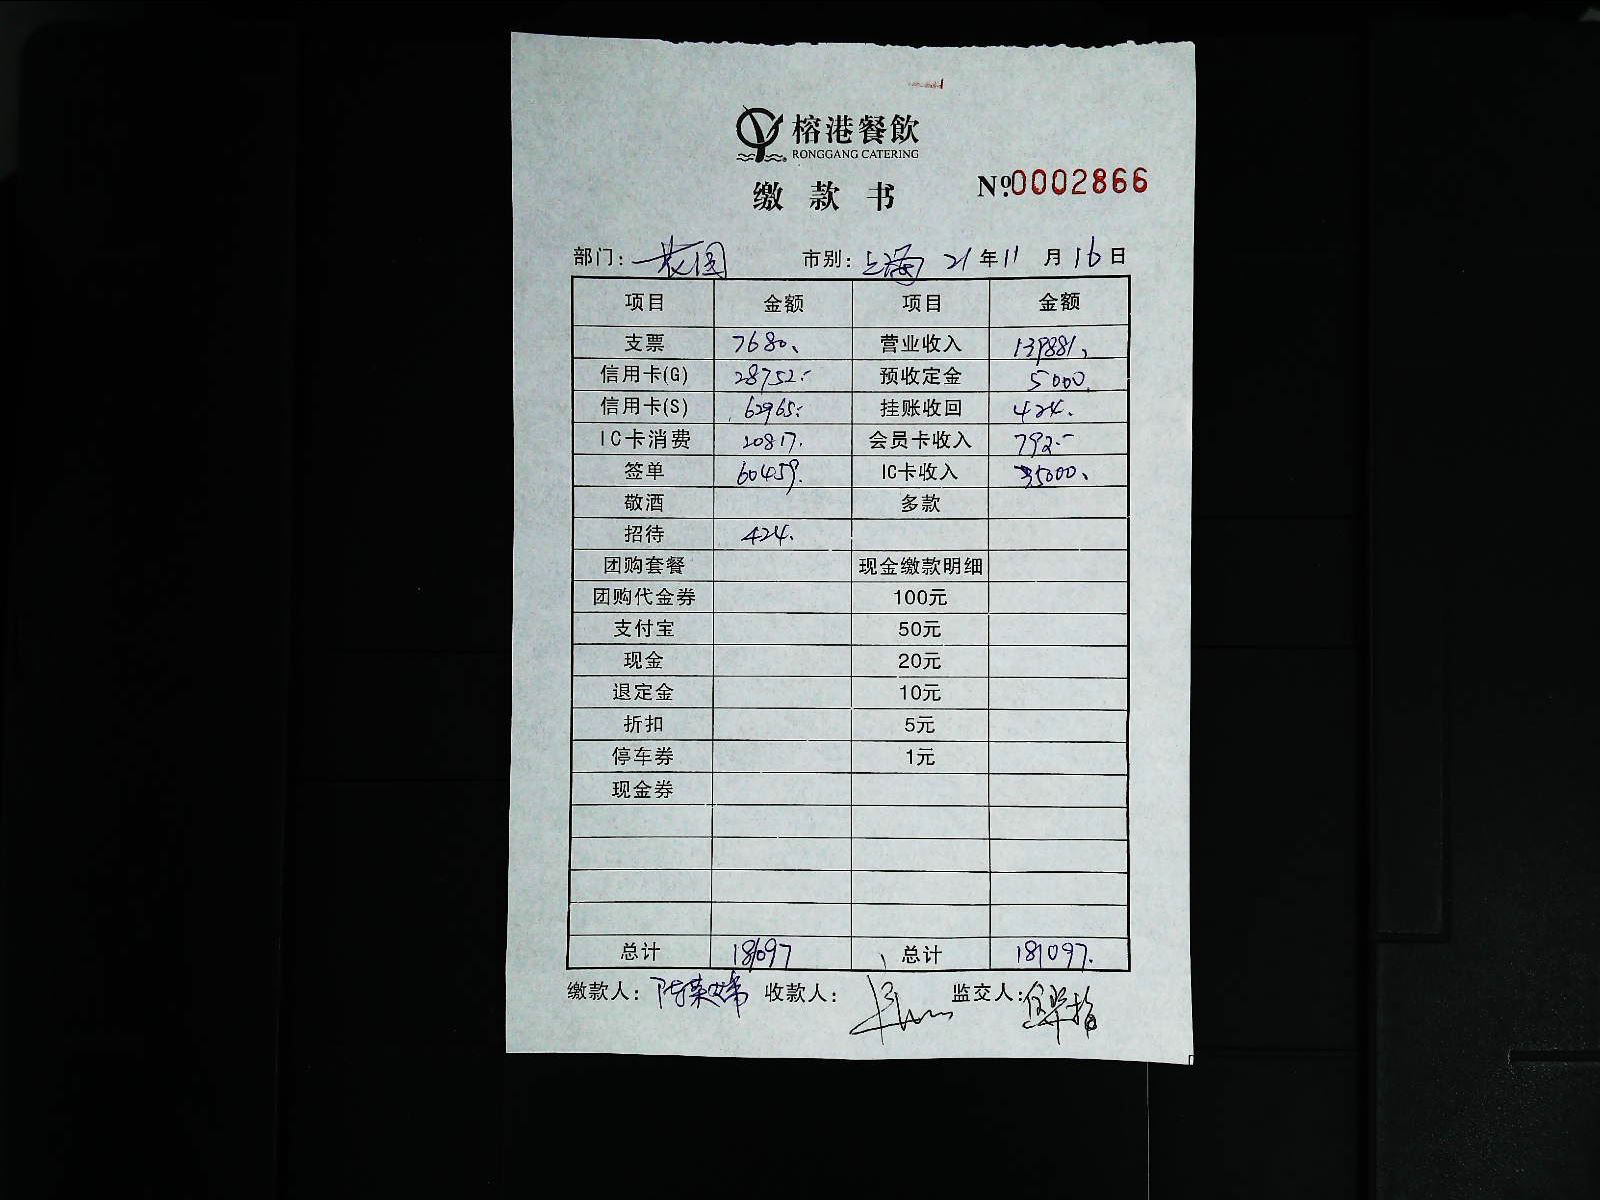 榕港餐飲
RONGGANG CATERING
缴款书 №0002866
部门： 市别：上海 21年11月16日
项目 金额 项目 金额
支票 7680、 营业收入 139881、
信用卡(G) 28752.- 预收定金 5000.
信用卡(S) 62965.- 挂账收回 424.
IC卡消费 20817. 会员卡收入 792.-
签单 60459. IC卡收入 35000、
敬酒 多款
招待 424.
团购套餐 现金缴款明细
团购代金券 100元
支付宝 50元
现金 20元
退定金 10元
折扣 5元
停车券 1元
现金券
总计 181097 总计 181097.
缴款人： 收款人： 监交人：